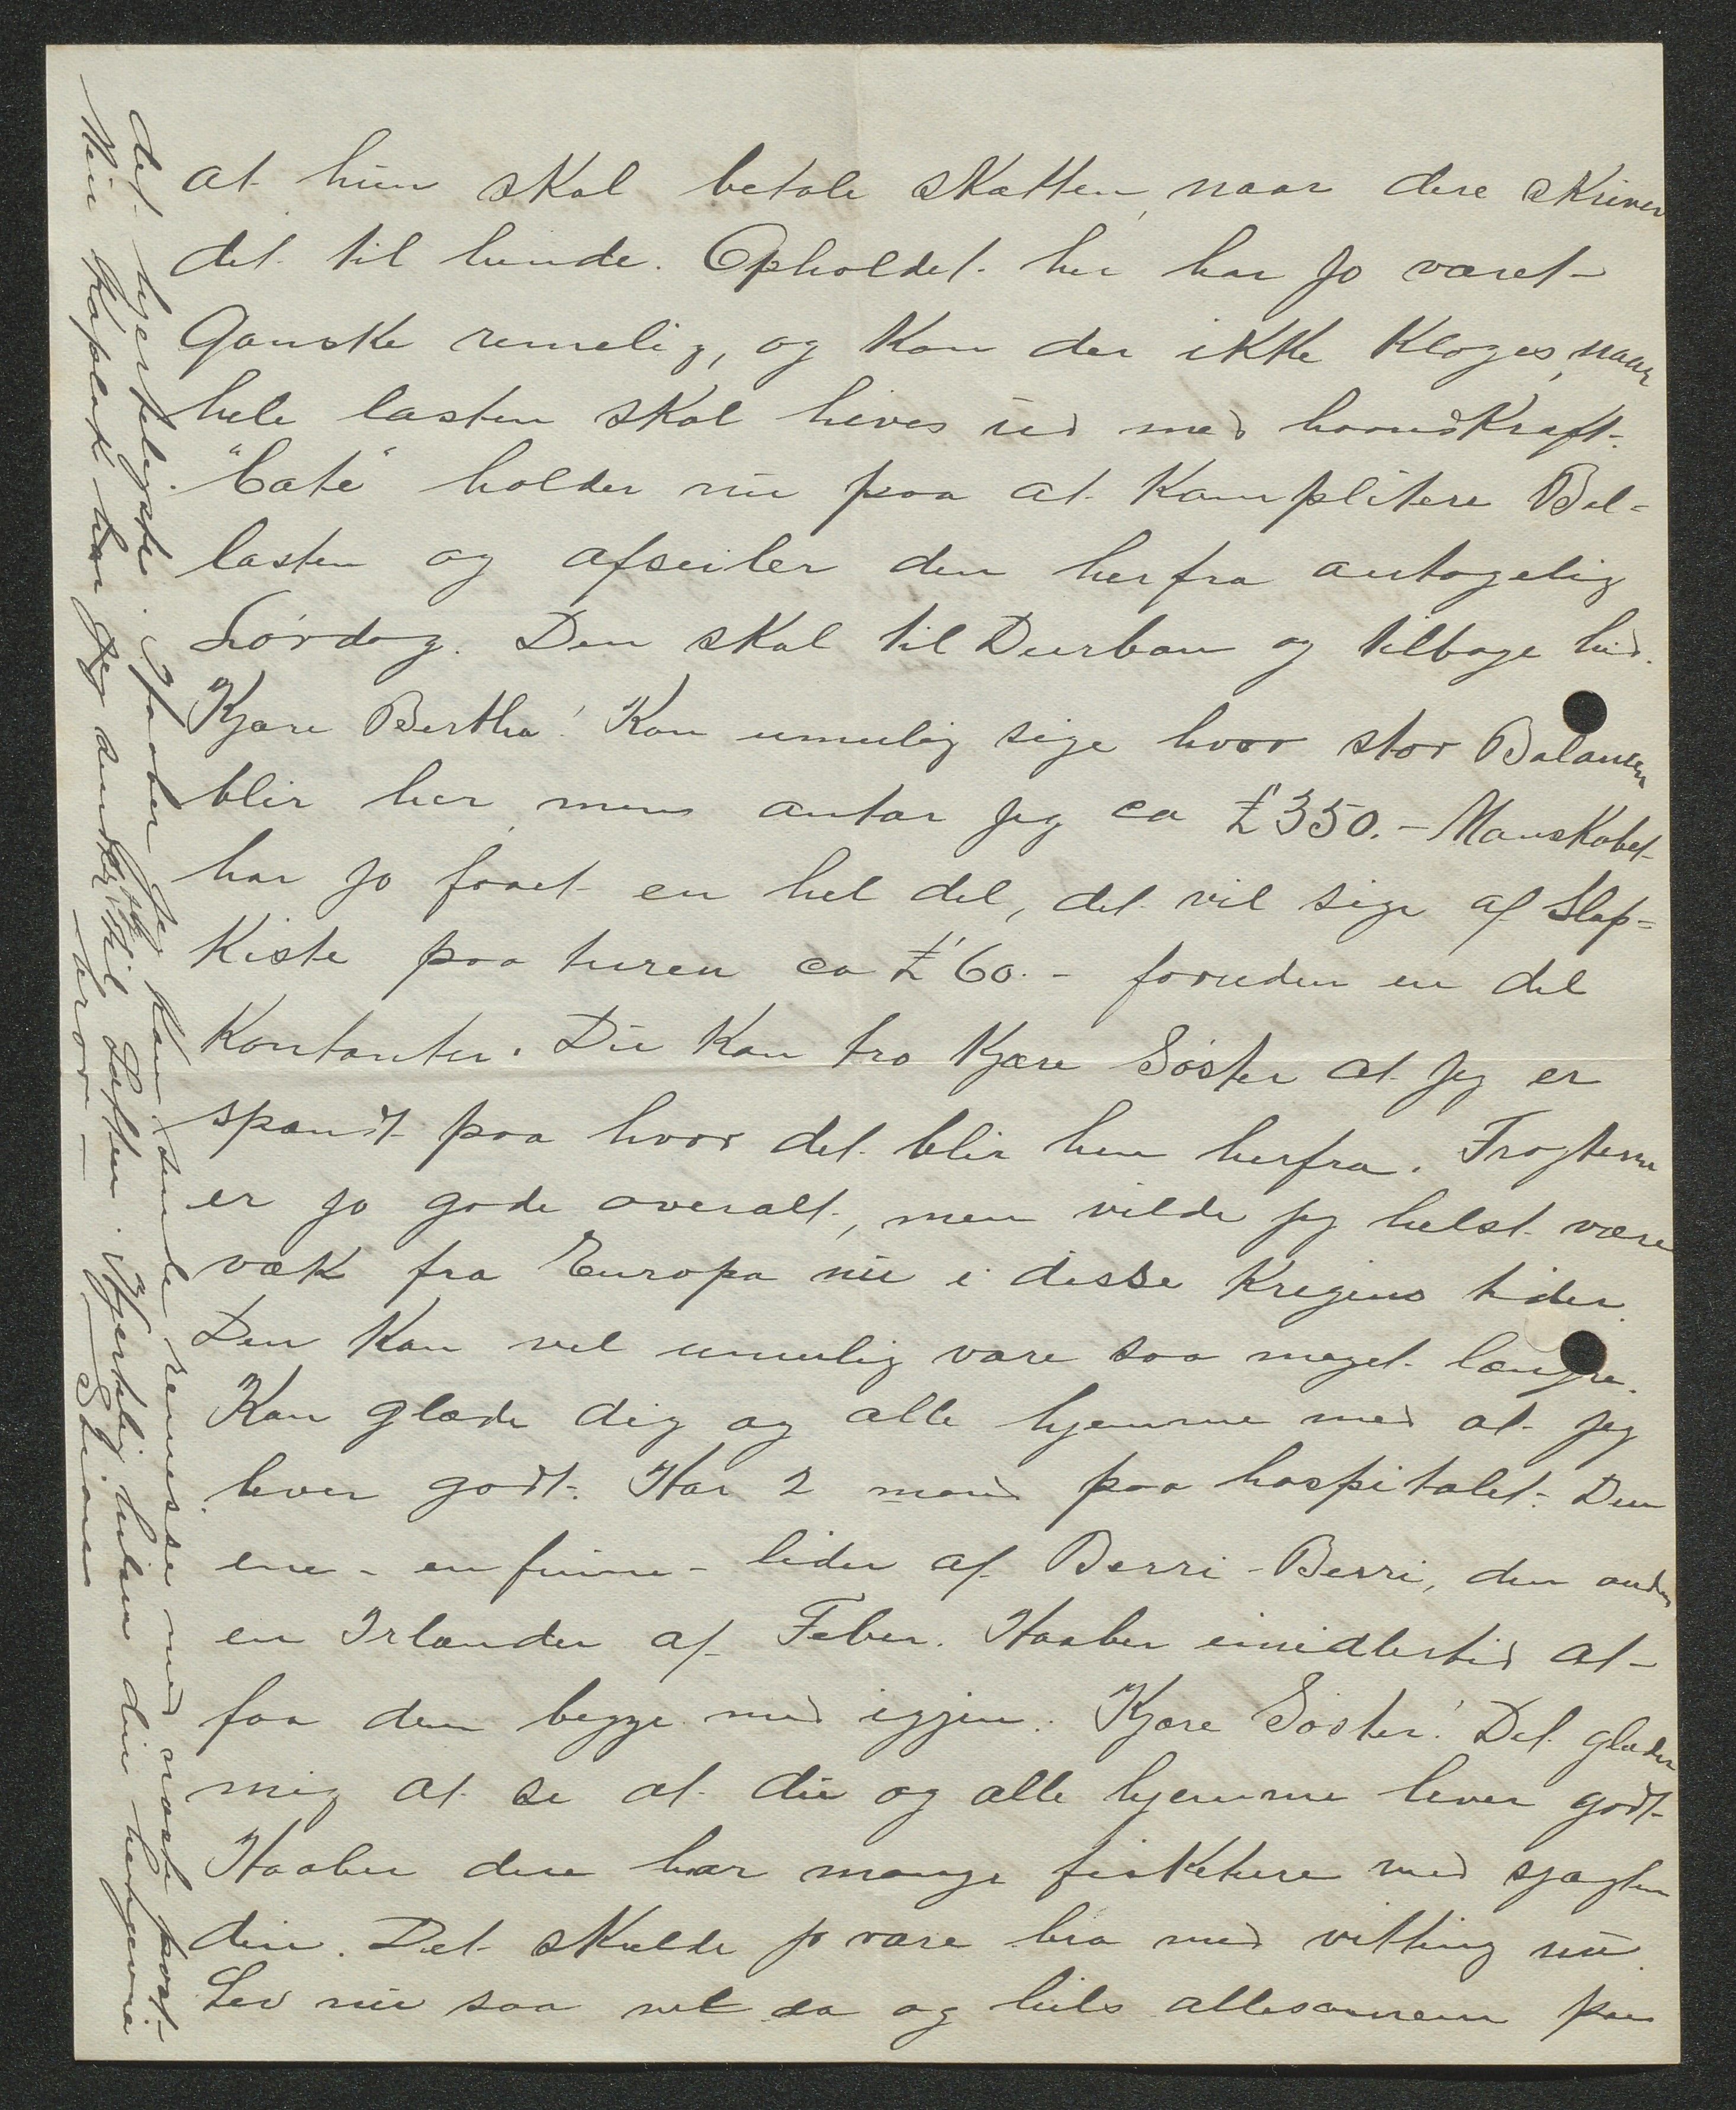 at hun skal betale skatten, naar dere skriver
det til hende. Opholdet her har jo været
Ganske rimelig, og kan der ikke klages, naar
hele lasten skal hives ud med haandkraft.
"Cate" holder nu paa at kamplitere Bal=
lasten og afseiler den herfra antagelig
Lørdag. Den skal til Durban og tilbage hid.
Kjære Bertha! Kan umulig sige hvor stor Balancen
blir her, mens antar jeg ca £350.- Manskabet
har jo faaet en hel del, det vil sige af Slap=
kiste paa turen ca £60.- foruden en del
Kontanter. Du kan tro kjære Søster at jeg er
spændt paa hvor det blir hen herfra. Fragterne
er jo gode overalt, men vilde jeg helst være
væk fra Europa nu i disse krigens tider.
Den kan vel umulig vare saa meget længre.
Kan glæde dig og alle hjemme med at jeg
lever godt. Har 2 mand paa hospitalet: Den
ene - en finne - lider af Berri-Berri, den anden
en Irlænder af Feber. Haaber imidlertid at
faa dem begge med igjen. Kjære Søster! Det glæder
mig at se at du og alle hjemme lever godt.
Haaber dere har mange fisketure med sjægten
din. Det skulde jo være bra med vitting nu.
Lev nu saa vel da og hils allesammen paa
det hjerteligste. Haaber jeg kan sende remesse med næste post.
Min Kaplak har jeg tænkt til Løften. Hjertelig hilsen din hengivne
bror